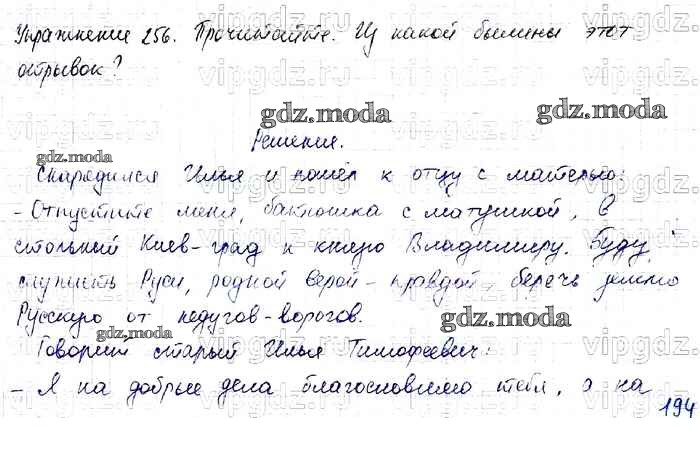 Упражнение 256. Прочитайте. Из какой былины этот
отрывок?
gdz.moda
gdz.moda
Решение.
gdz.moda
gdz.moda
Снарядился Илья и пошёл к отцу с матерью:
- Отпустите меня, батюшка с матушкой, в
стольный Киев-град к князю Владимиру. Буду
служить Руси, родной верой-правдой, беречь землю
Русскую от недугов-ворогов.
gdz.moda
gdz.moda
Говорит старый Илья Тимофеевич:
- Я на добрые дела благословляю тебя, а на
194